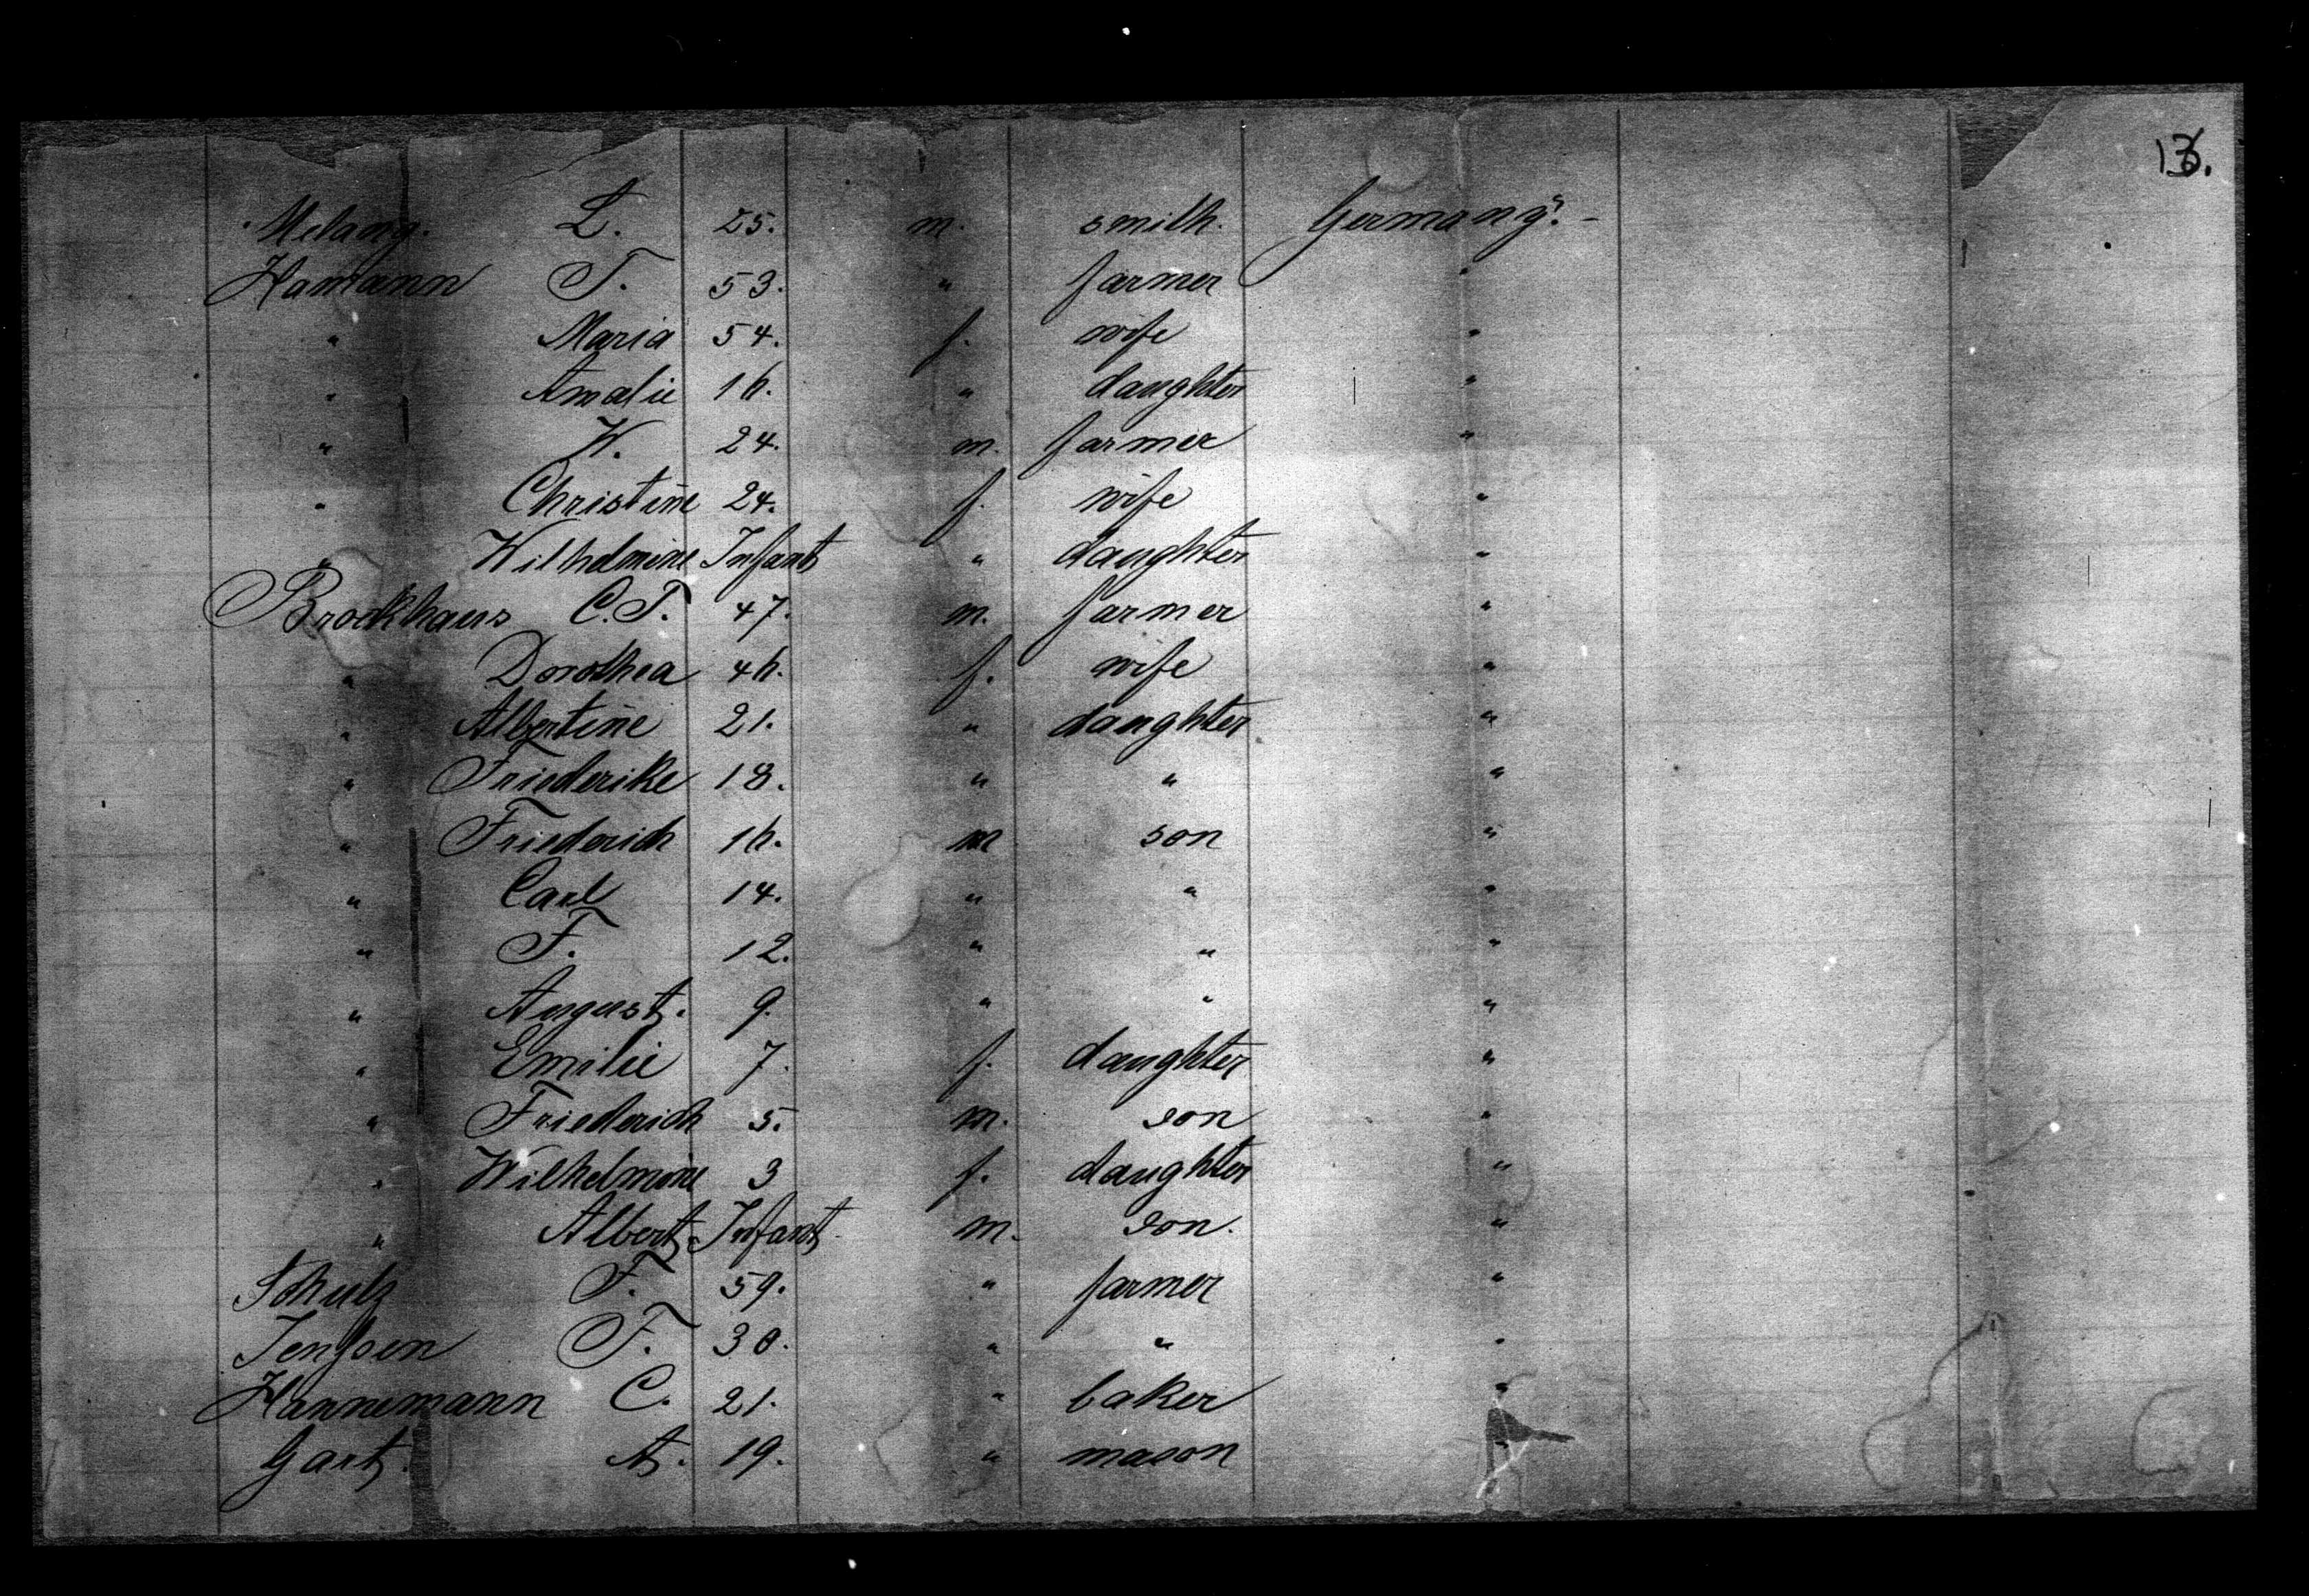 Melang. L. 25. m. smith. Germany. -
Hamann T. 53. " farmer "
" Maria 54. f. wife "
" Amalie 16. " daughter "
" W. 24. m. farmer "
" Christine 24. f. wife "
" Wilhelmine Infant " daughter "
Brockhaus C. T. 47. m. farmer "
" Dorothea 46. f. wife "
" Albertine 21. " daughter "
" Friederike 18. " " "
" Friederich 16. m son "
" Carl 14. " " "
" F. 12. " " "
" August. 9. " " "
" Emilie 7. f. daughter "
" Friederich 5. m. son "
" Wilhelmine 3 f. daughter "
" Albert. Infant m. son. "
Schulz F. 59. " farmer "
Jenssen F. 30. " " "
Hannemann C. 21. " baker "
Gart. A. 19. " mason "